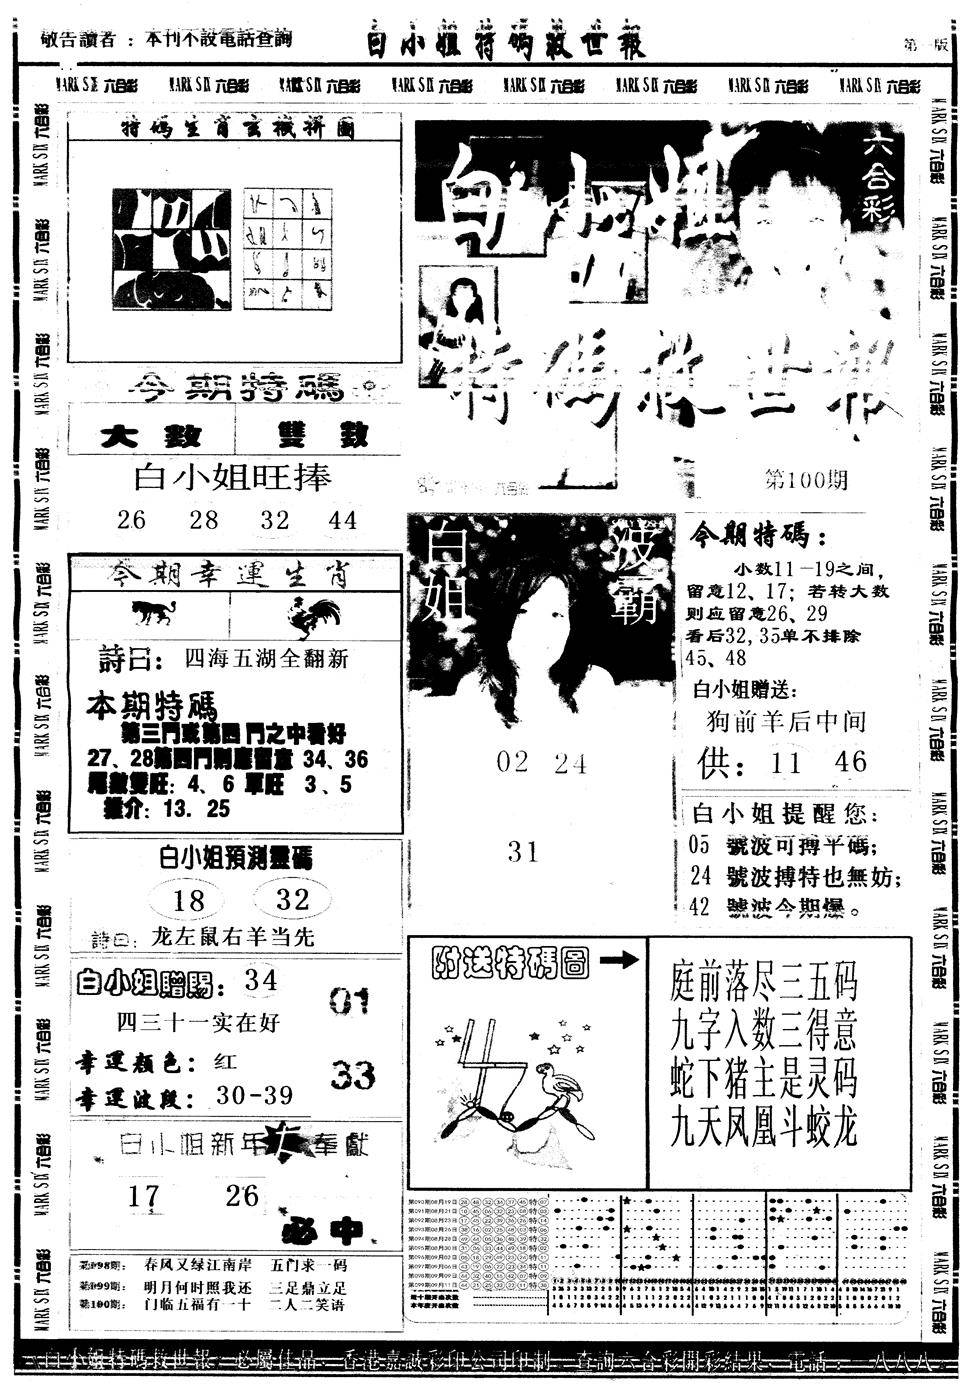 敬告讀者：本刊不設電話查詢
白小姐特碼救世報
第一版
MARK SIX 六合彩 MARK SIX 六合彩 MARK SIX 六合彩 MARK SIX 六合彩 MARK SIX 六合彩 MARK SIX 六合彩 MARK SIX 六合彩 MARK SIX 六合彩
特碼生肖玄機拼圖
今期特碼
大數 雙數
白小姐旺捧
26 28 32 44
今期幸運生肖
詩曰：四海五湖全翻新
本期特碼
第三門或第四門之中看好
27、28第四門則應留意 34、36
尾數雙旺：4、6 單旺 3、5
推介：13．25
白小姐預測靈碼
18 32
詩曰：龙左鼠右羊当先
白小姐贈賜：34
四三十一实在好
01
幸運顏色：红
33
幸運波段：30-39
白小姐新年大奉獻
17 26
必中
第098期：春风又绿江南岸 五门求一码
第099期：明月何时照我还 三足鼎立足
第100期：门临五福有一十 二人二笑语
六合彩
白小姐
特碼救世報
第100期
白姐
波霸
02 24
31
今期特碼：
小数11-19之间，
留意12、17；若转大数
则应留意26、29
看后32,35单不排除
45、48
白小姐贈送：
狗前羊后中间
供：11 46
白小姐提醒您：
05 號波可搏平碼；
24 號波搏特也無妨；
42 號波今期爆。
附送特碼圖
庭前落尽三五码
九字入数三得意
蛇下猪主是灵码
九天凤凰斗蛟龙
白小姐特碼救世報，必屬佳品．香港嘉誠彩印公司印制．查詢六合彩開彩結果．電話：一八八八